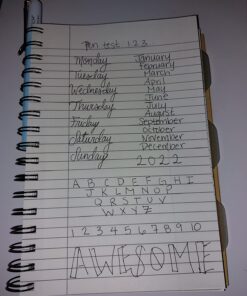 Pen test 1 2 3
Monday January
February
Tuesday March
April
Wednesday May
June
Thursday July
August
Friday September
October
Saturday November
December
Sunday 2022
A B C D E F G H I
J K L M N O P
Q R S T U V
W X Y Z
1 2 3 4 5 6 7 8 9 10
AWESOME